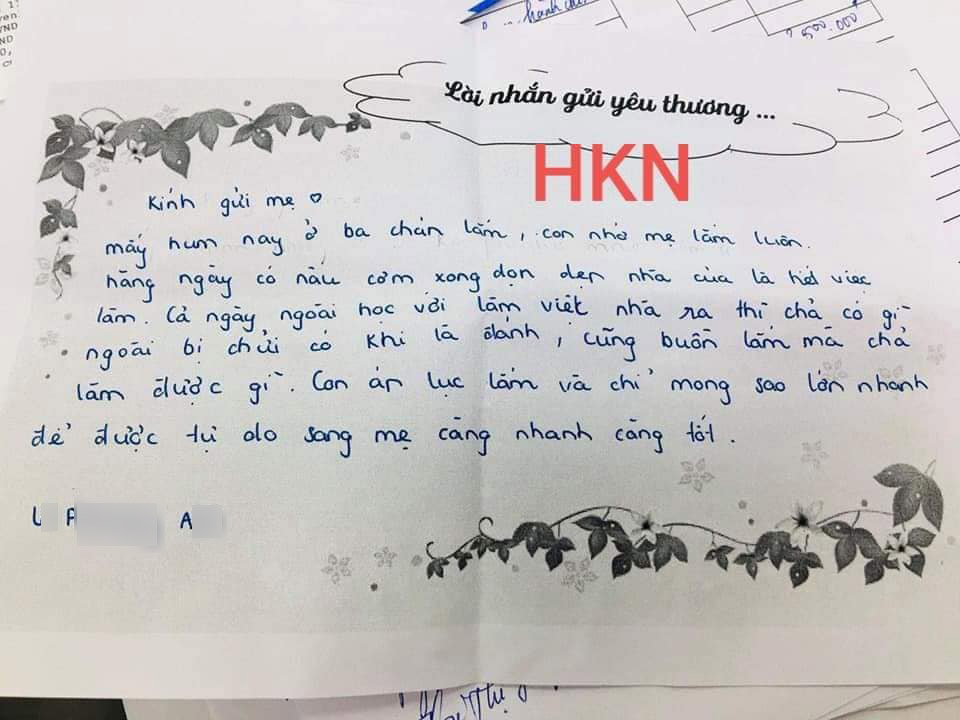 hành chí
500.000đ
Lời nhắn gửi yêu thương ...
HKN
Kính gửi mẹ ♡
mấy hum nay ở ba chán lắm, con nhớ mẹ lắm luôn.
hằng ngày có nấu cơm xong dọn dẹp nhà cửa là hết việc
làm. Cả ngày ngoài học với làm việt nhà ra thì chả có gì
ngoài bị chửi có khi là đánh, cũng buồn lắm mà chả
làm được gì. Con áp lục lắm và chỉ mong sao lớn nhanh
để được tự do sang mẹ càng nhanh càng tốt.
A